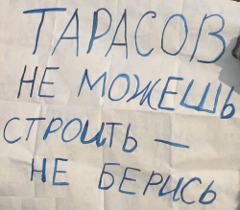 ТАРАСОВ
НЕ МОЖЕШЬ
СТРОИТЬ —
НЕ БЕРИСЬ